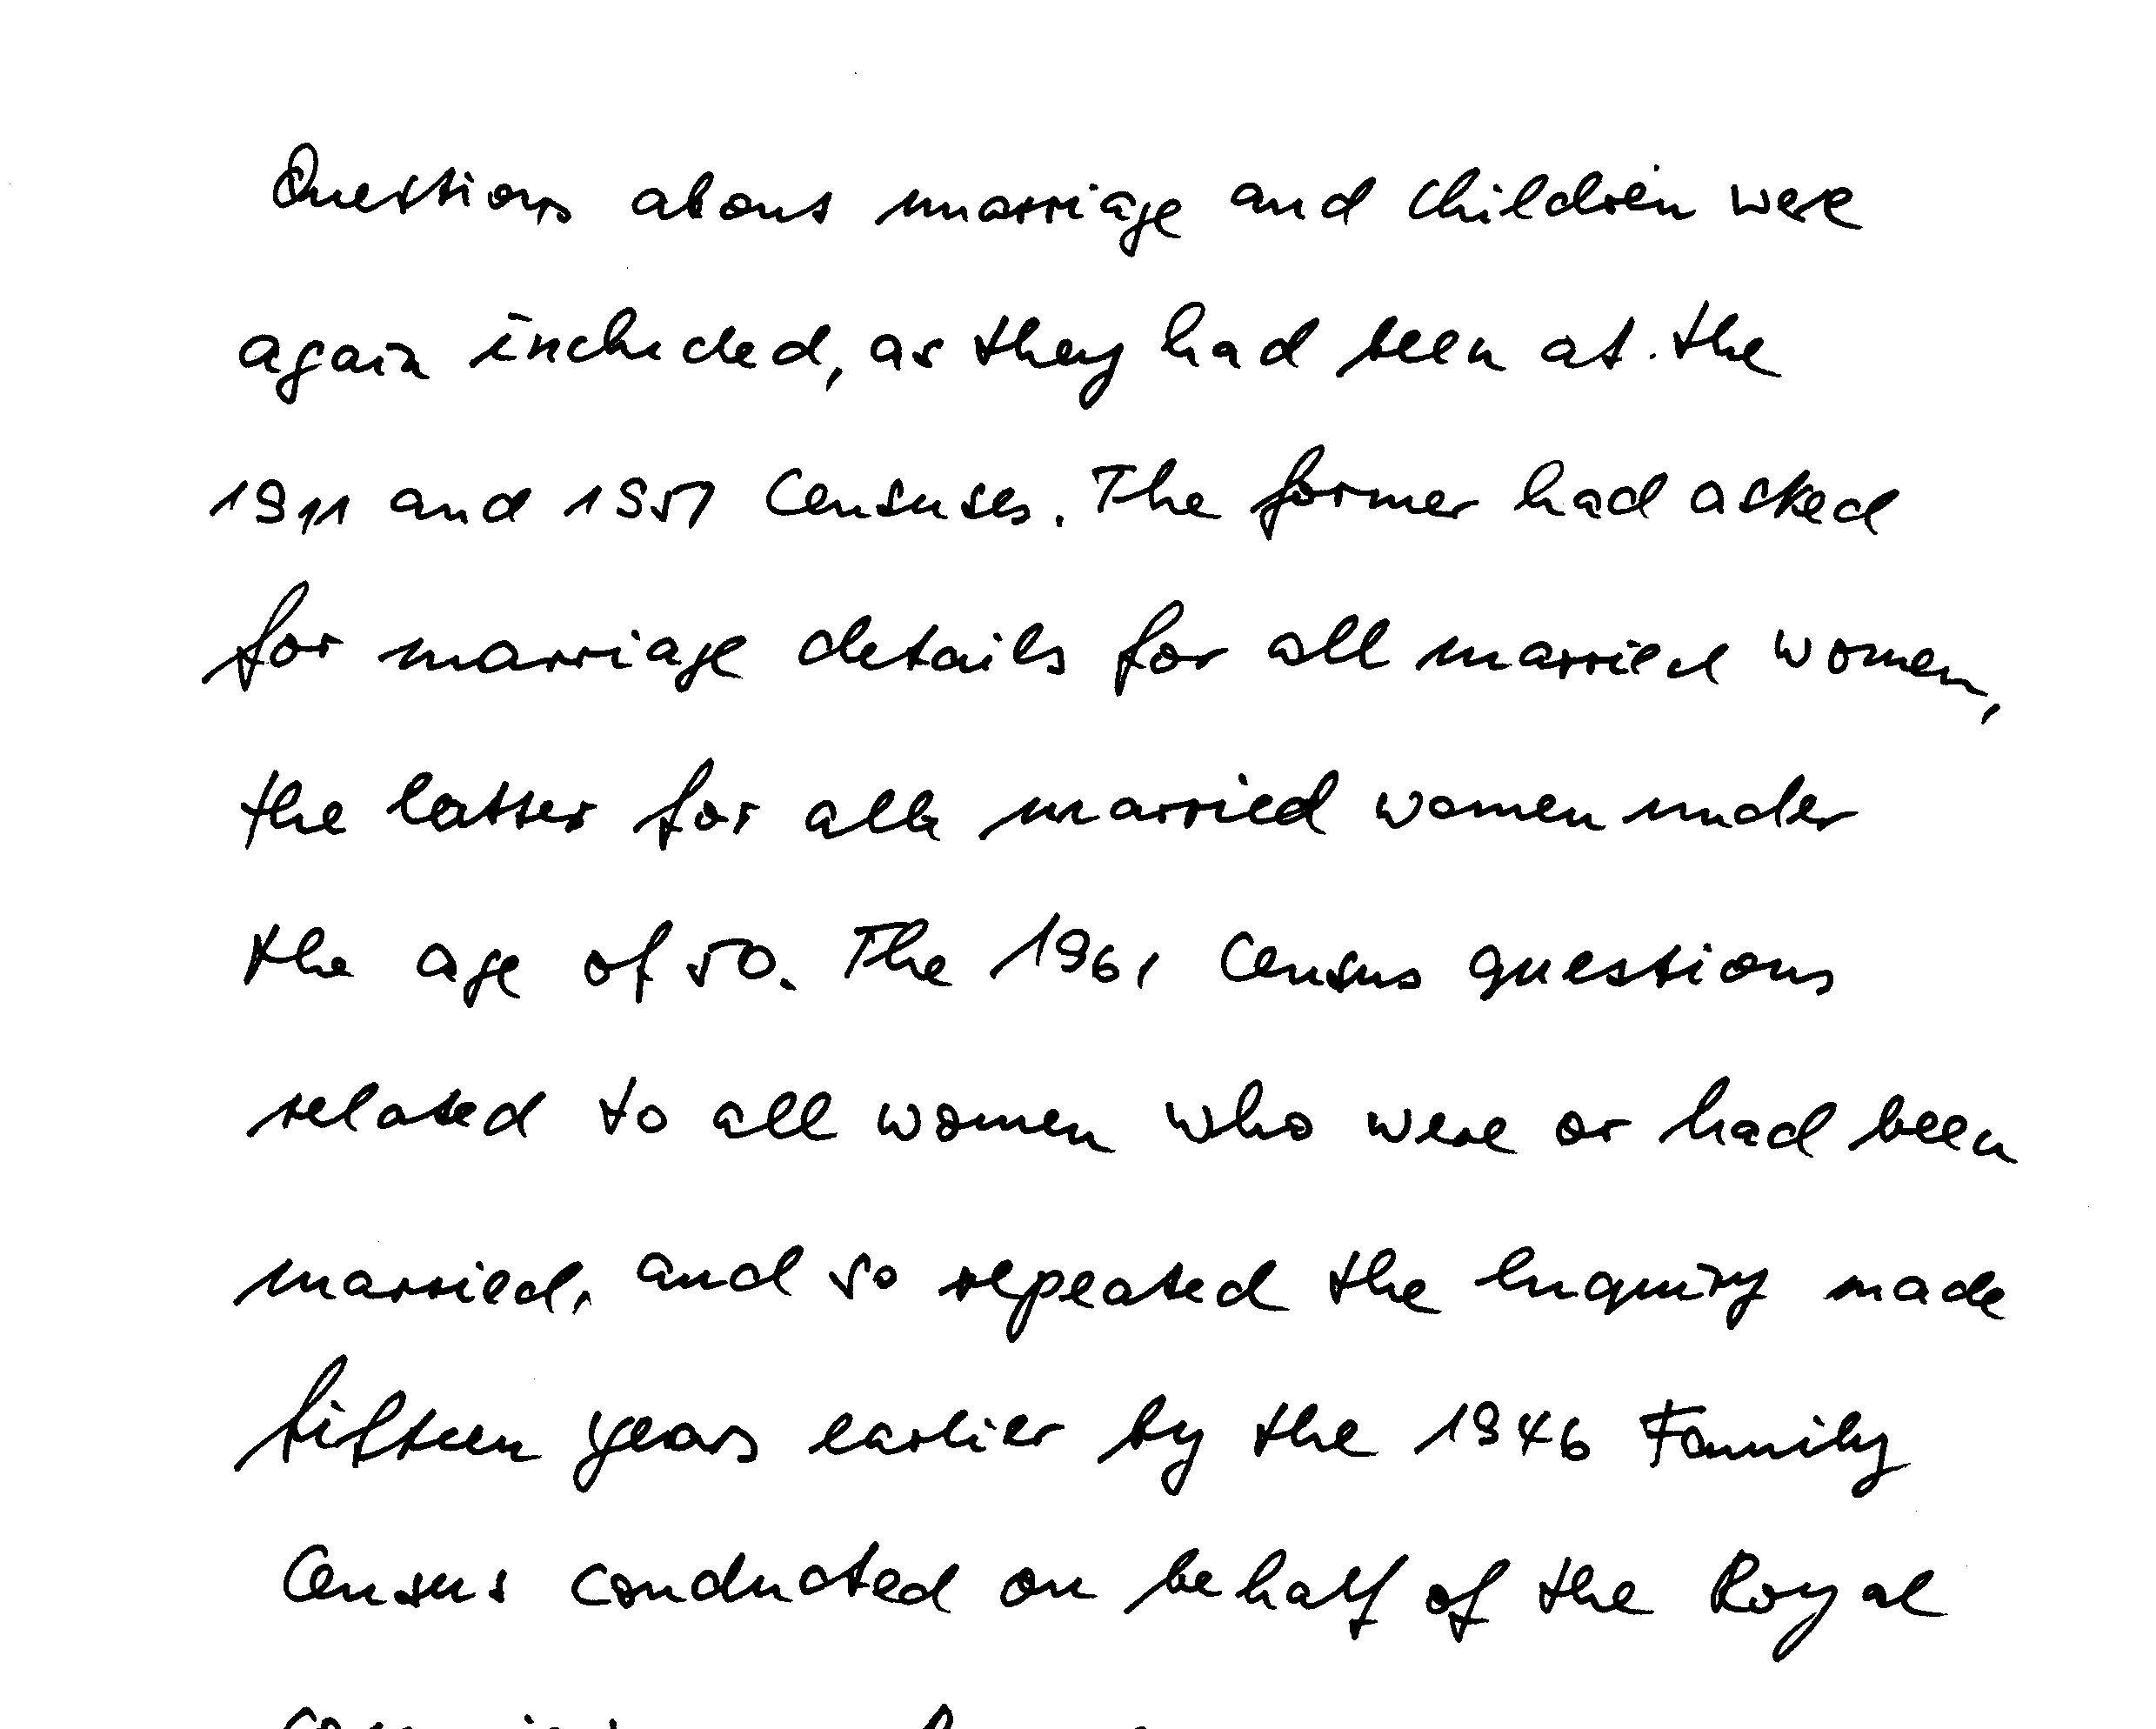 Questions about marriage and children were
again included, as they had been at the
1911 and 1951 Censuses. The former had asked
for marriage details for all married women,
the latter for all married women under
the age of 50. The 1961 Census questions
related to all women who were or had been
married, and so repeated the enquiry made
fifteen years earlier by the 1946 Family
Census conducted on behalf of the Royal